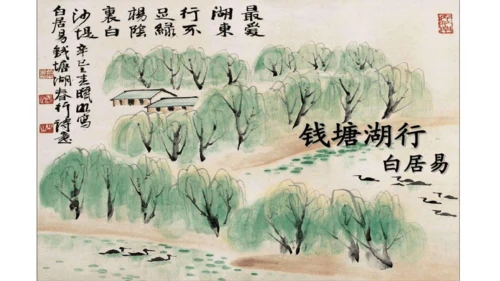 最爱
湖東
行不
足綠
楊陰
裏白
沙堤 辛巳 写
白居易钱塘湖春行 诗意
钱塘湖行
白居易